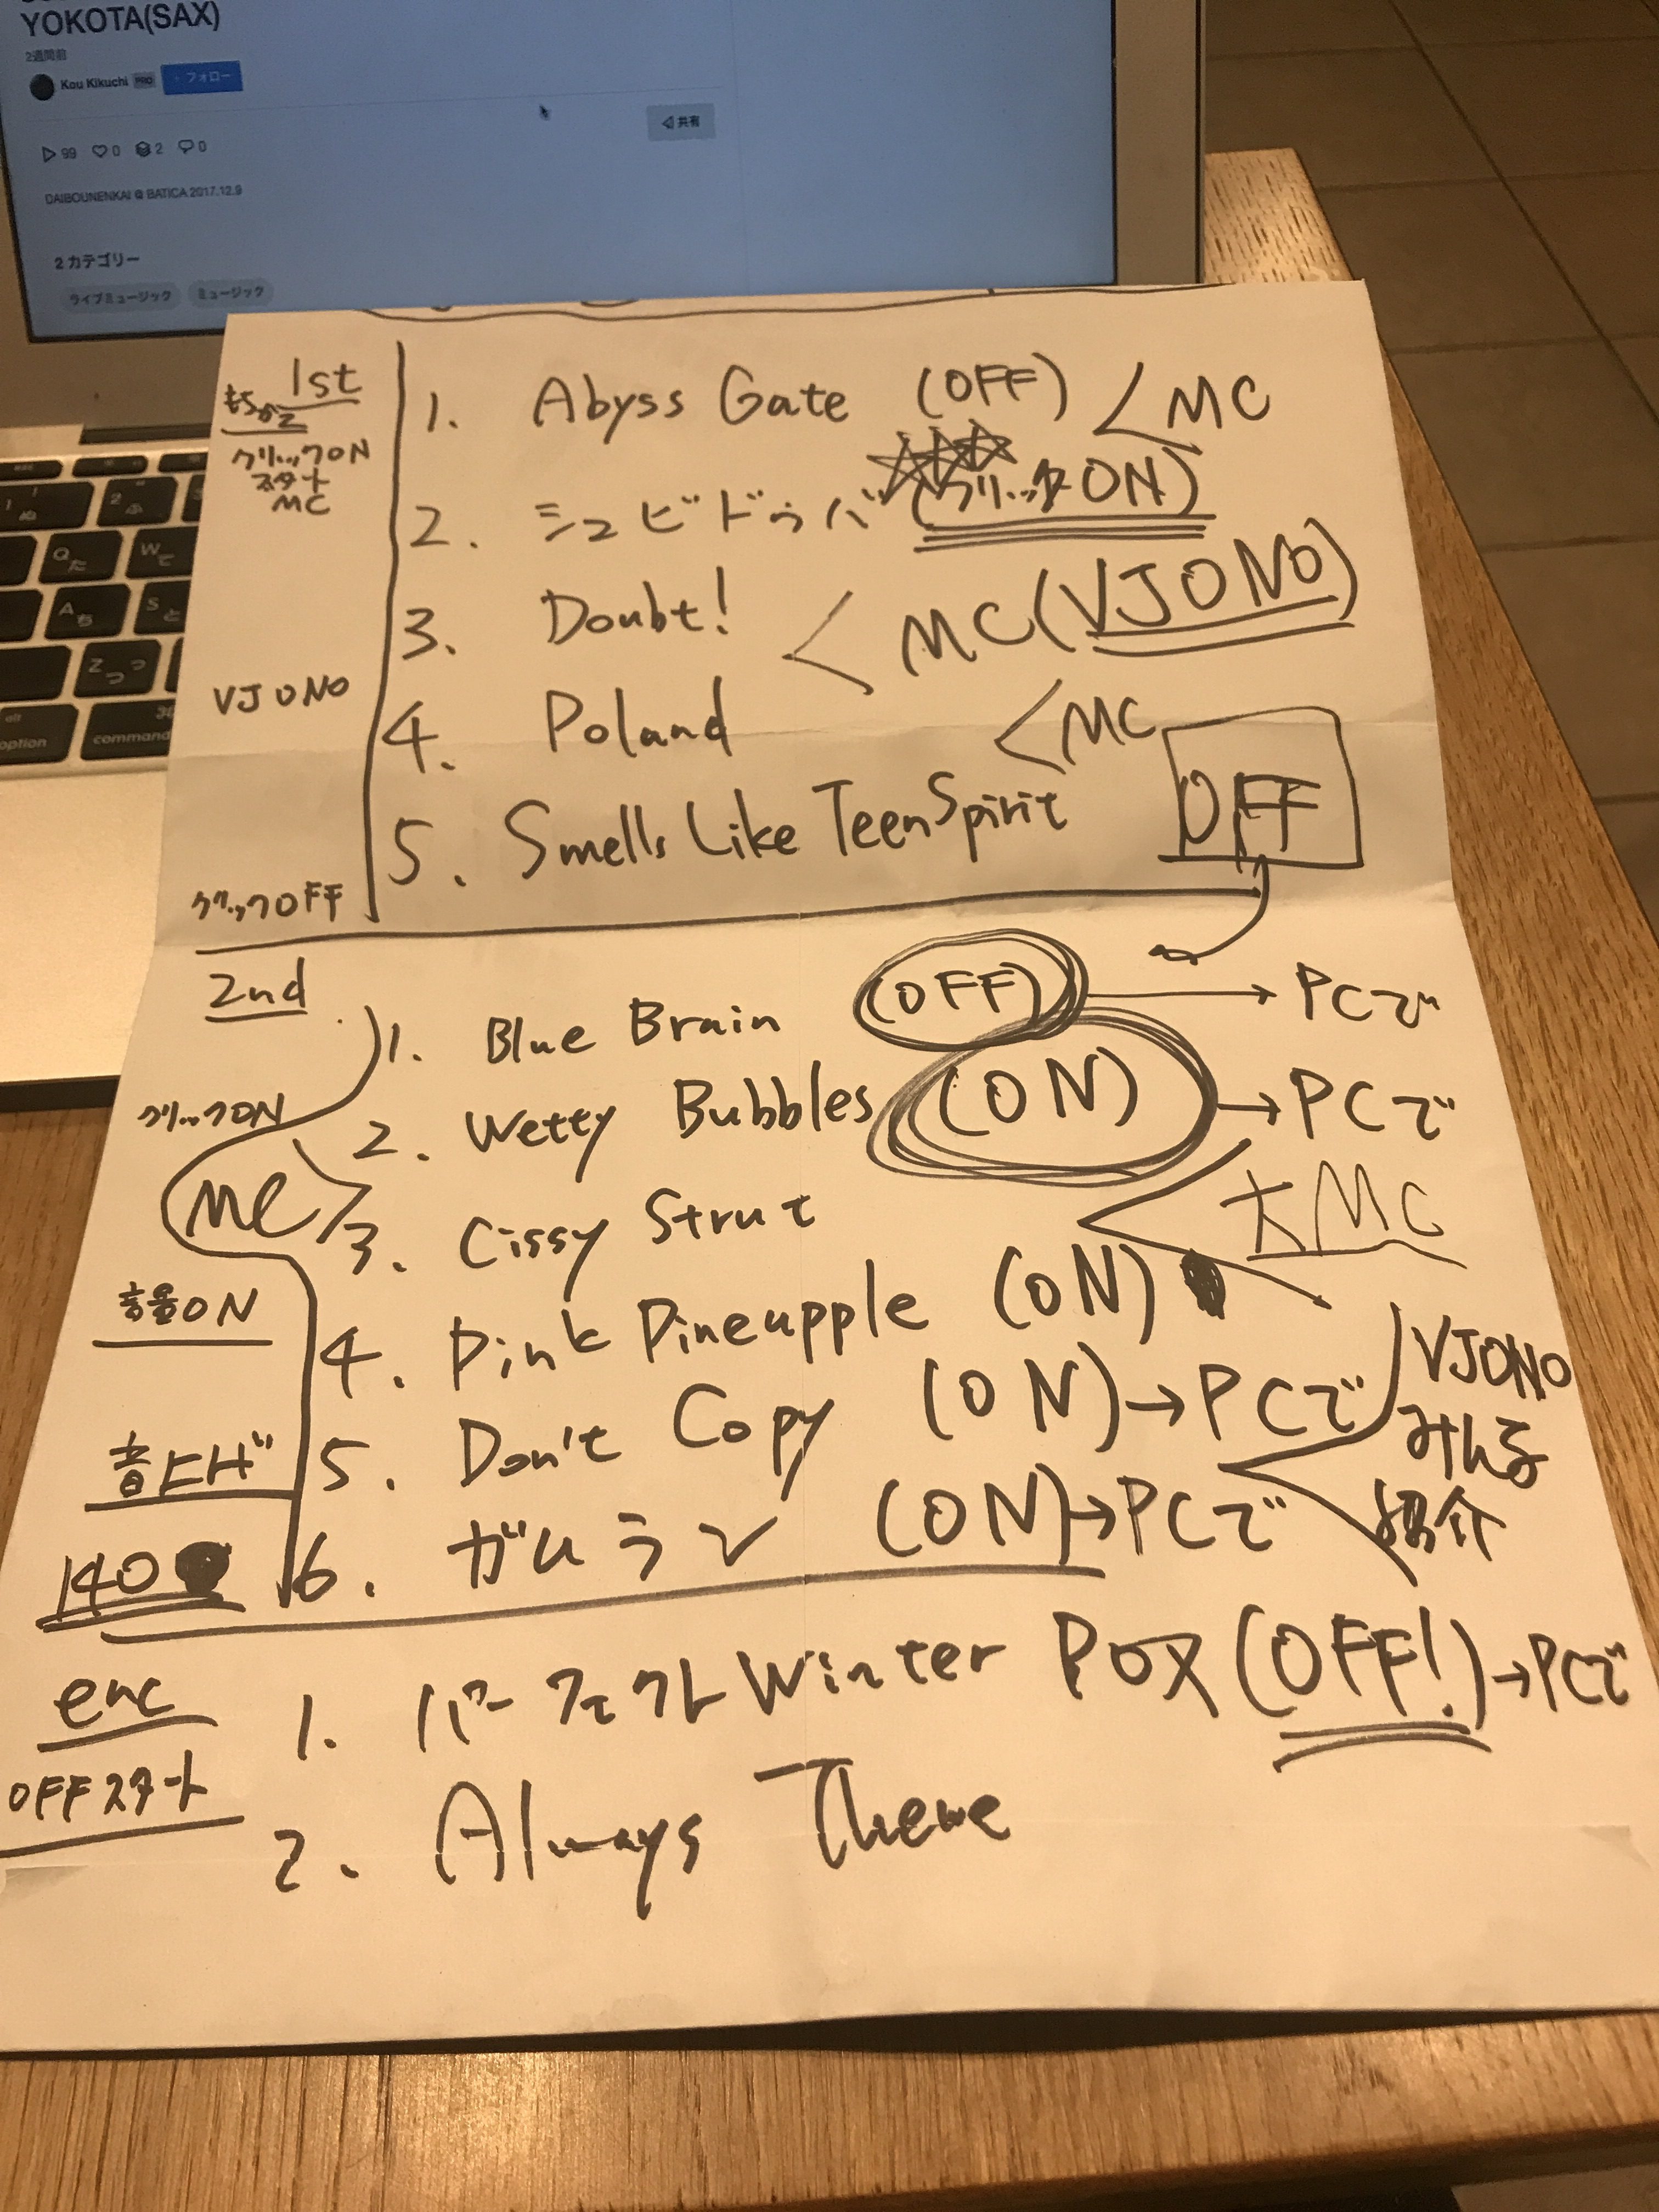 YOKOTA(SAX)
2週間前
Kou Kikuchi PRO + フォロー
99 0 2 0
共有
DAIBOUNENKAI @ BATICA 2017.12.9
2 カテゴリー
ライブミュージック ミュージック
Q た W て
A ち S と
Z つ っ
alt
option command
1st
クリックON
スタート
MC
1. Abyss Gate (OFF) < MC
2. シュビドゥバ (クリックON)
3. Doubt! < MC (VJ ONO)
VJ ONO
4. Poland < MC
5. Smells Like Teen Spirit OFF
クリックOFF
2nd
1. Blue Brain (OFF) → PCで
クリックON
2. Wetty Bubbles (ON) → PCで
MC
大MC
3. Cissy Strut
音量ON
4. Pink Pineapple (ON)
VJ ONO
みんな
紹介
5. Don't Copy (ON) → PCで
140
6. ガムラン (ON) → PCで
enc
OFFスタート
1. パーフェクト Winter POX (OFF!) → PCで
2. Always There